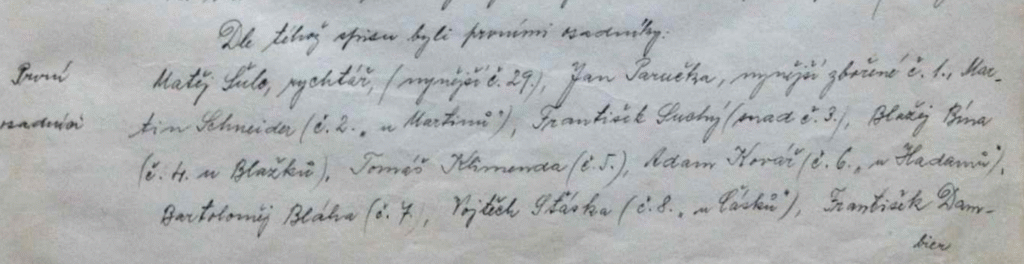 Dle téhož spisu byli prvními osadníky:
První
osadníci
Matěj Šulc, rychtář, (nynější č. 29.), Jan Paručka, nynější zbořené č. 1., Mar-
tin Schneider (č. 2. „u Martinů"), František Suchý (snad č. 3.), Blažej Bína
(č. 4. u Blažků), Tomáš Klimenda (č. 5.), Adam Kovář (č. 6. „u Hadamů"),
Bartoloměj Bláha (č. 7.), Vojtěch Stáska (č. 8. „u Cásků"), František Dam-
bier